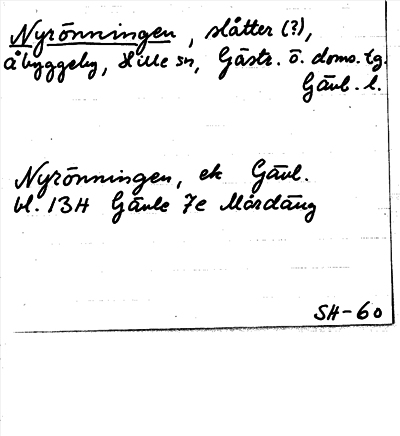 Nyrönningen, slåtter (?),
Åbyggeby, Hille sn, Gästr. ö. doms. tg.
Gävl. l.
Nyrönningen, ek Gävl.
bl. 13H Gävle 7e Mårdäng
SH-60